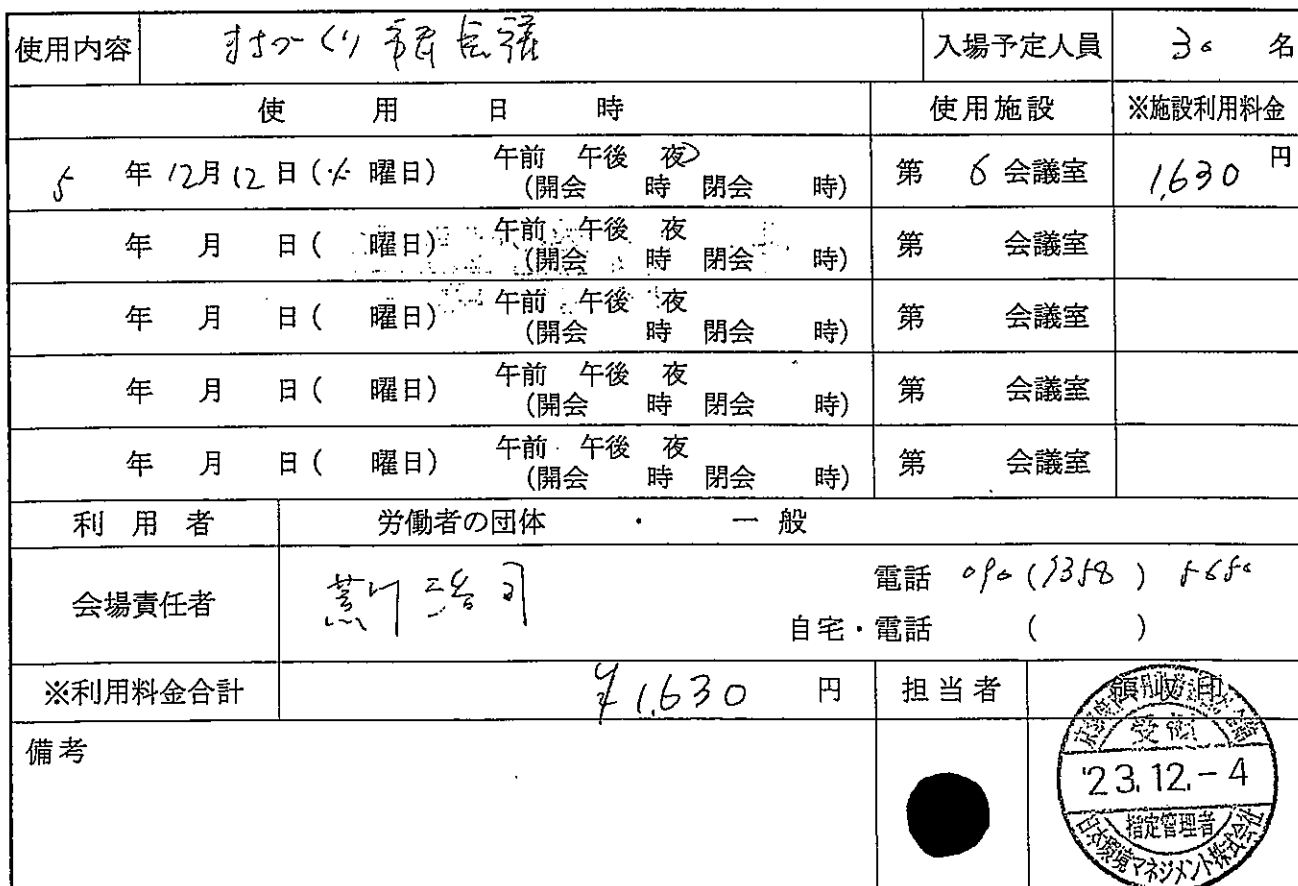 使用内容 まちづくり市民会議 入場予定人員 30 名
使用日時 使用施設 ※施設利用料金
5 年 12月 12 日 (火 曜日) 午前 午後 夜 (開会 時 閉会 時) 第 6 会議室 1,630 円
年 月 日 ( 曜日) 午前 午後 夜 (開会 時 閉会 時) 第 会議室
年 月 日 ( 曜日) 午前 午後 夜 (開会 時 閉会 時) 第 会議室
年 月 日 ( 曜日) 午前 午後 夜 (開会 時 閉会 時) 第 会議室
年 月 日 ( 曜日) 午前 午後 夜 (開会 時 閉会 時) 第 会議室
利用者 労働者の団体 ・ 一般
会場責任者 電話 090 ( )
自宅・電話 ( )
※利用料金合計 ¥1,630 円 担当者 領収印
備考
受領
'23.12.-4
指定管理者
日本環境マネジメント株式会社